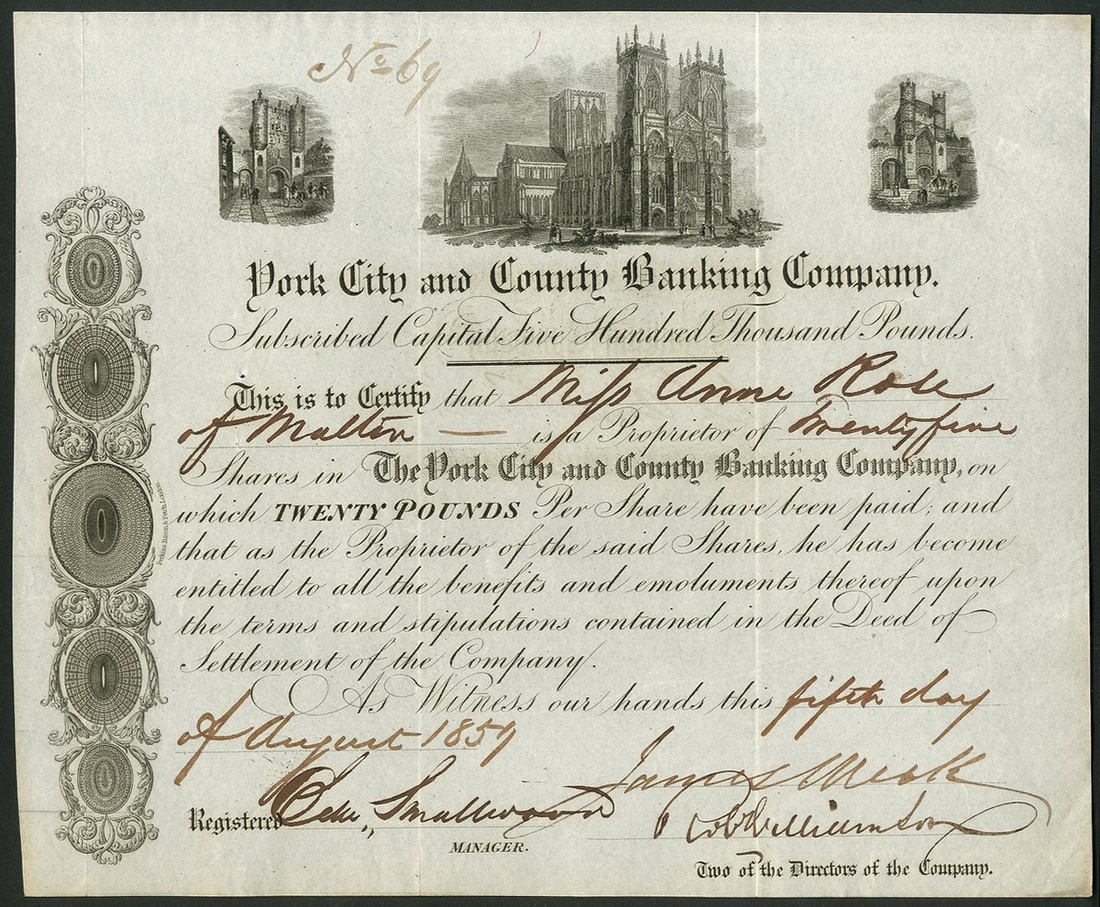 No 69
York City and County Banking Company.
Subscribed Capital Five Hundred Thousand Pounds.
This is to Certify that Miss Anne Rose
of Malton — is a Proprietor of Twenty five
Shares in The York City and County Banking Company, on
which TWENTY POUNDS Per Share have been paid; and
that as the Proprietor of the said Shares, he has become
entitled to all the benefits and emoluments thereof upon
the terms and stipulations contained in the Deed of
Settlement of the Company.
As Witness our hands this fifth day
of August 1859
James Meek
Registered Smallwood
Williamson
MANAGER.
Two of the Directors of the Company.
Perkins, Bacon & Petch, London.